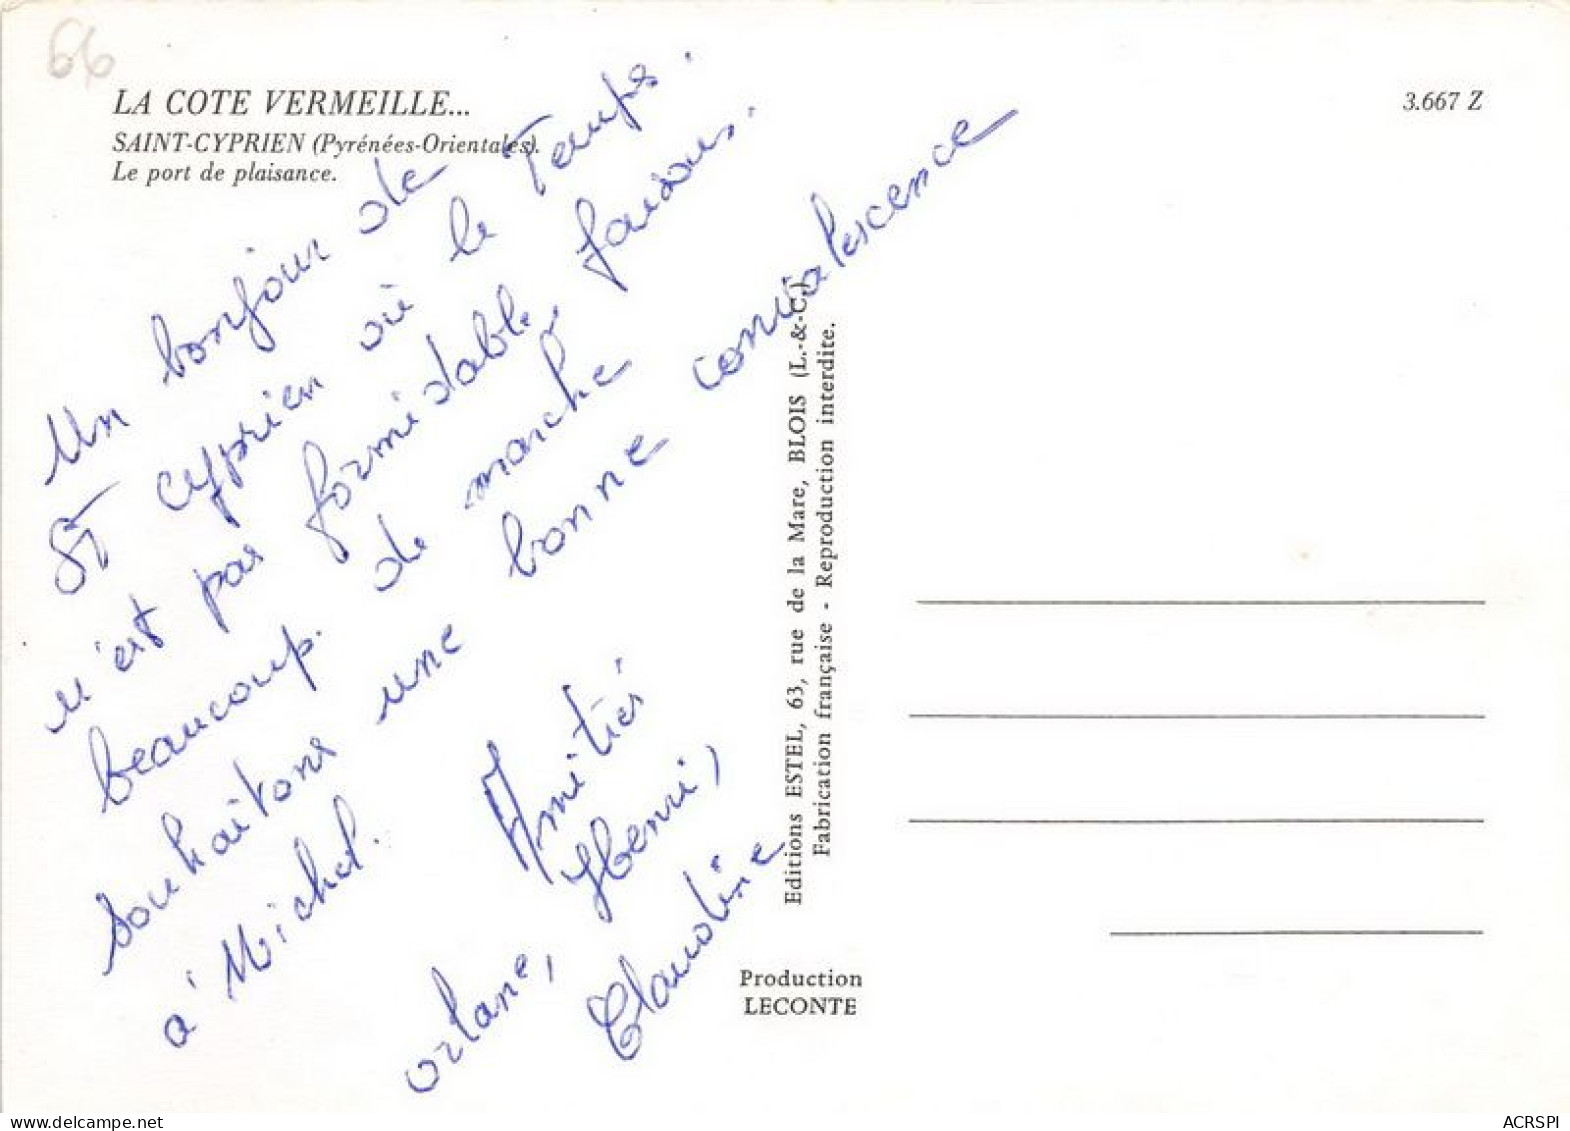 66
LA COTE VERMEILLE...
SAINT-CYPRIEN (Pyrénées-Orientales).
Le port de plaisance.
3.667 Z
Un bonjour de
St Cyprien où le Temps
n'est pas formidable, faisons
beaucoup de marche
souhaitons une bonne convalescence
à Michel.
Amitiés
orlane, Henri,
Claudine
Editions ESTEL, 63, rue de la Mare, BLOIS (L.-&-C.)
Fabrication française - Reproduction interdite.
Production
LECONTE
ACRSPI